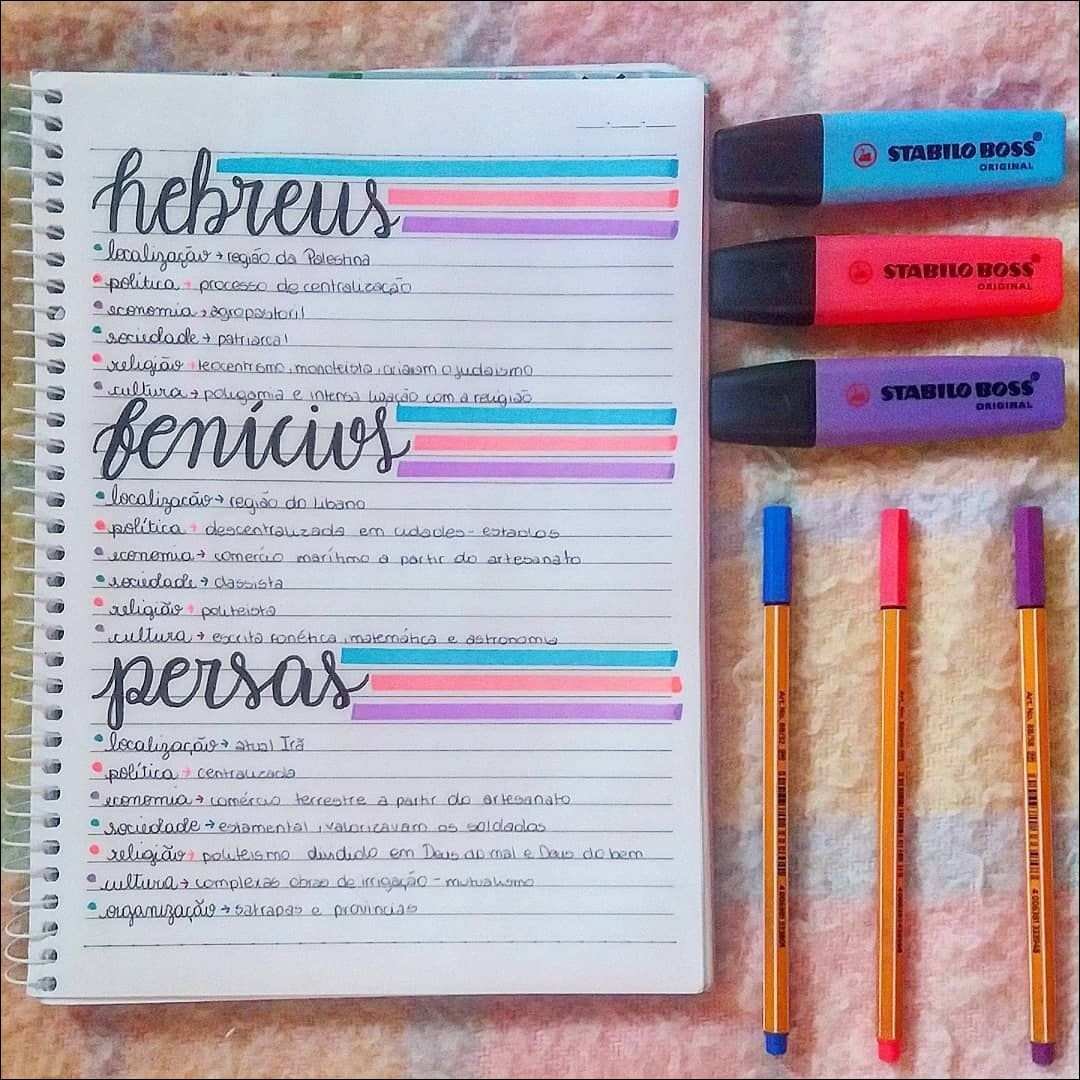 hebreus
localização → região da Palestina
política → processo de centralização
economia → agropastoril
sociedade → patriarcal
religião → teocentrismo, monoteísta, criaram o judaísmo
cultura → poligamia e intensa ligação com a religião
fenícios
localização → região do Líbano
política → descentralizada em cidades-estados
economia → comércio marítimo a partir do artesanato
sociedade → classista
religião → politeista
cultura → escrita fonética, matemática e astronomia
persas
localização → atual Irã
política → centralizada
economia → comércio terrestre a partir do artesanato
sociedade → estamental, valorizavam os soldados
religião → politeismo dividido em Deus do mal e Deus do bem
cultura → complexas obras de irrigação - mutualismo
organização → satrapas e províncias
STABILO BOSS
ORIGINAL
STABILO BOSS
ORIGINAL
STABILO BOSS
ORIGINAL
Art. No. 88/32
Art. No.
Art. No. 88/55